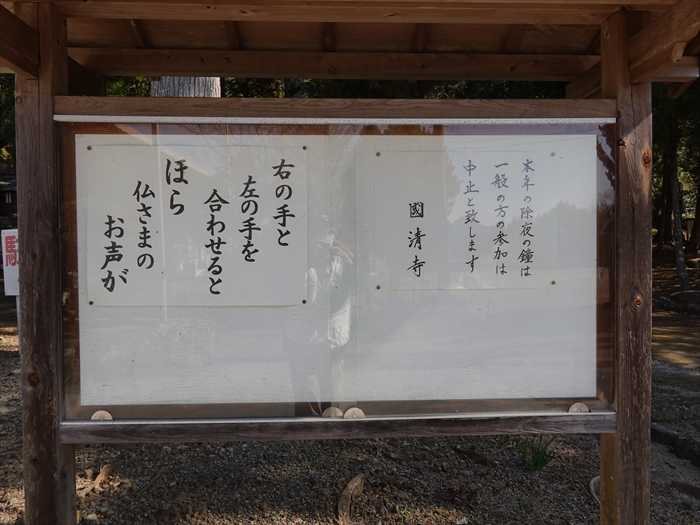 本年の除夜の鐘は
一般の方の参加は
中止と致します
國清寺
右の手と
左の手を
合わせると
ほら
仏さまの
お声が